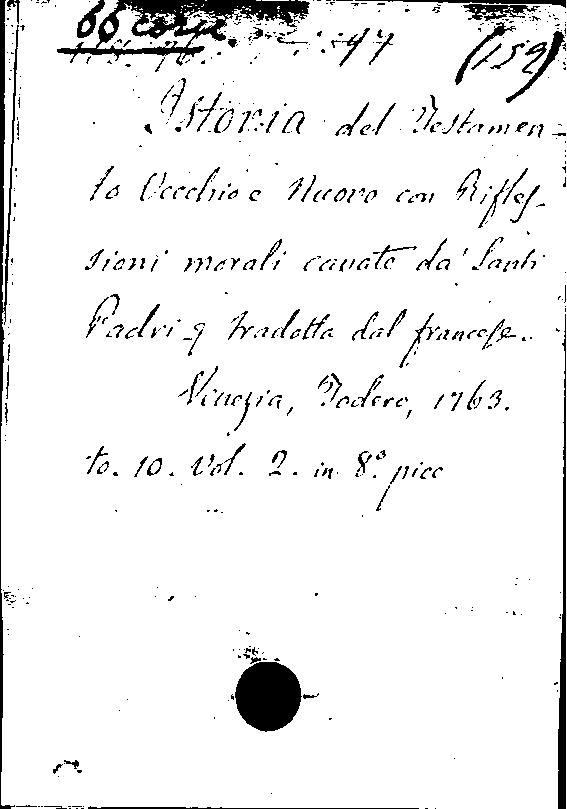 66 corp. 97 (152)
Istoria del Testamen-
to Vecchio e Nuovo con Rifles-
sioni morali cavate da' Santi
Padri tradotta dal francese.
Venezia, Todero, 1763.
to. 10. Vol. 2. in 8.° picc